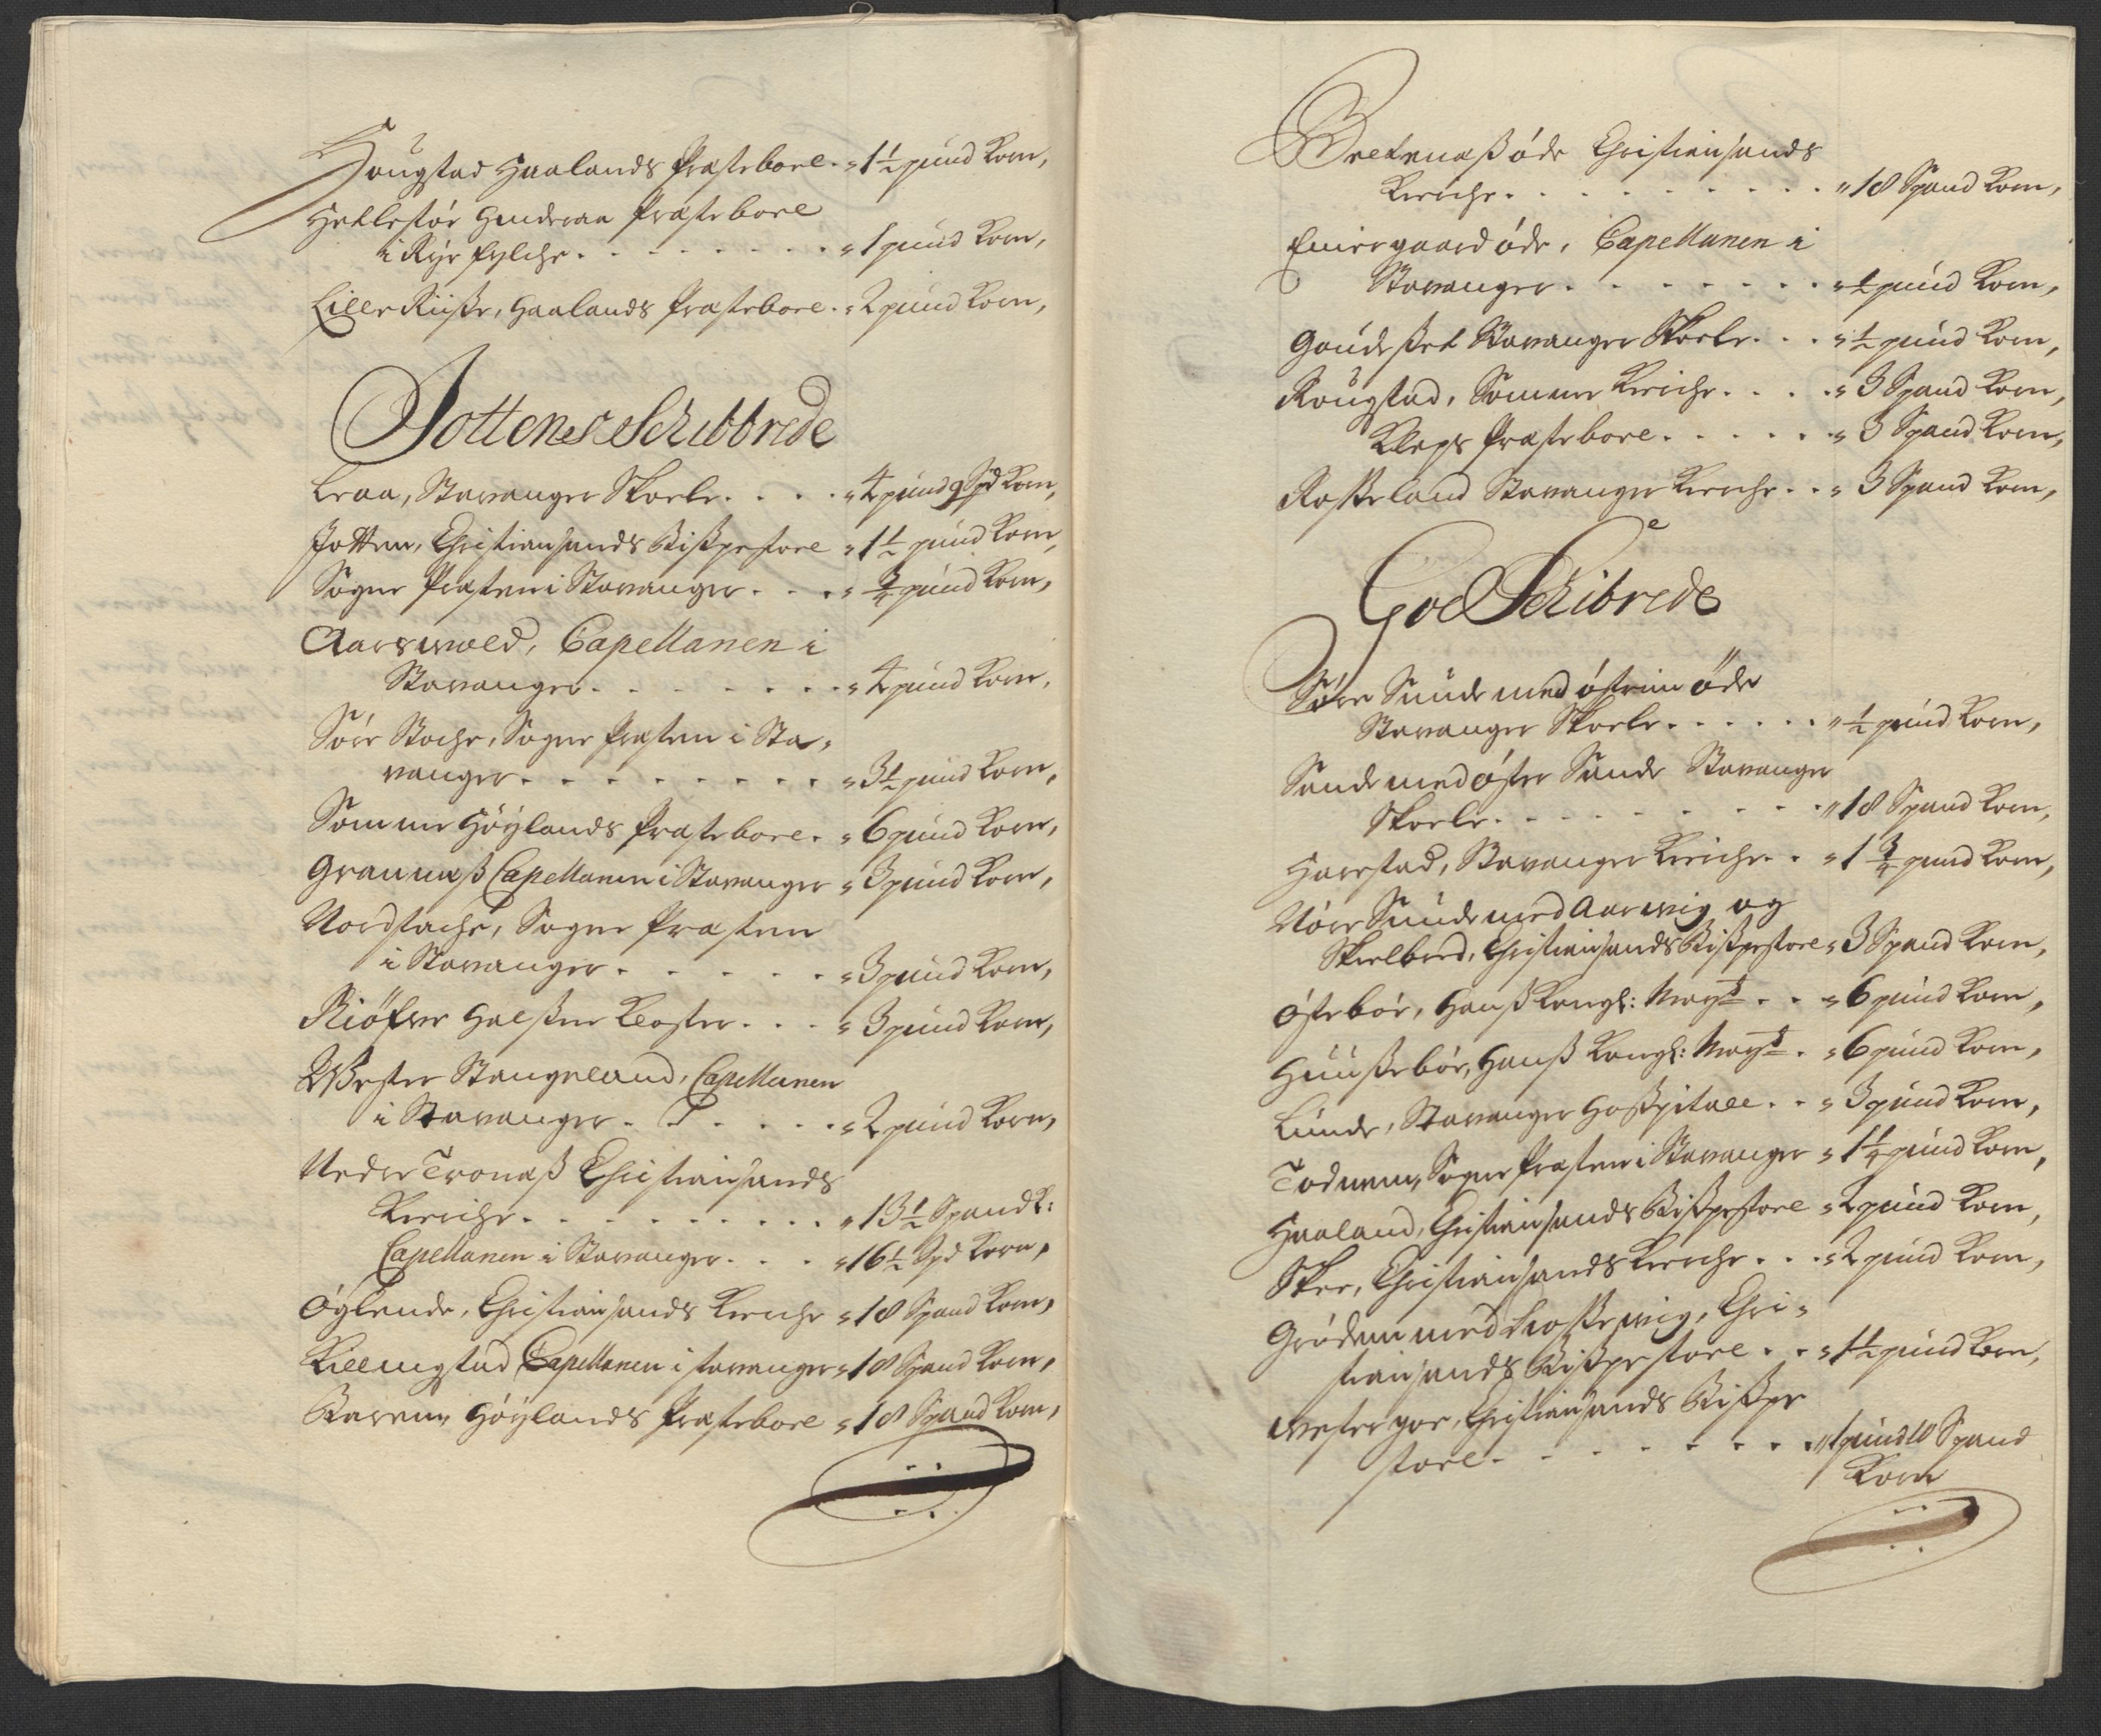 Haugstad Haalands Præstebore. „ 1½ pund Korn,
Hetlestør Hinderaa Præstebore
i Ryefylche. . . . . . . . „ 1 pund Korn,
Lille Riisse, Haalands Præstebore. „ 2 pund Korn,
Jottens Schibbrede
Leraa, Stavanger Skoele. . . . „ 4 pund 9 Spd Korn,
Jotten, Christiansands Bispestoel „ 1½ pund Korn,
Sogne Præsten i Stavanger. . . „ ¾ pund Korn,
Aarsvold, Capellanen i
Stavanger. . . . . . . . „ 4 pund Korn,
Søre Stoche, Sogne Præsten i Sta-
vanger. . . . . . . . . „ 3½ pund Korn,
Somme Høÿlands Præstebore. „ 6 pund Korn,
Grannæß Capellanen i Stavanger „ 3 pund Korn,
Nordstache, Sogne Præsten
i Stavanger. . . . . . „ 3 pund Korn,
Riöfver Halsne Kloster. . . „ 3 pund Korn,
Wester Stangeland, Capellanen
i Stavanger. . . . . . „ 2 pund Korn,
Neder Tronæß Christiansands
Kierche. . . . . . . . . . „ 13½ Spand K:
Capellanen i Stavanger. . . „ 16½ Spd Korn,
Øÿlende, Christiansands Kierche „ 18 Spand Korn,
Killingstad Capellanen i Stavanger „ 18 Spand Korn,
Bærem, Høÿlands Præstebore „ 18 Spand Korn,
Bretenæß øde Christiansands
Kierche. . . . . . . . . . „ 18 Spand Korn,
Eniergaard øde, Capellanen i
Stavanger. . . . . . . „ ½ pund Korn,
Goudeset Stavanger Skoele. . . „ ½ pund Korn,
Rougstad, Somme Kierche. . . . „ 3 Spand Korn,
Kleps Præstebore. . . . . . „ 3 Spand Korn,
Rosseland Stavanger Kierche. . „ 3 Spand Korn,
Goe Schibrede
Søre Sunde med østeim øde
Stavanger Skoele. . . . . . „ ½ pund Korn,
Sande med øster Sunde Stavanger
Skoele. . . . . . . . . „ 18 Spand Korn,
Harestad, Stavanger Kierche. . „ 1¾ pund Korn,
Nøre Sunde med Aarevig og
Skielbred, Christiansands Bispestoel „ 3 Spand Korn,
Østebøe, Hanß Kongl: Mayts . . „ 6 pund Korn,
Huussebøe, Hanß Kongl: Mayts . „ 6 pund Korn,
Lunde, Stavanger Hospitall. . „ 3 pund Korn,
Todnem, Sogne Præsten i Stavanger „ 1¼ pund Korn,
Haaland, Christiansands Bispestoel „ 2 pund Korn,
Skee, Christiansands Kierche. . . „ 2 pund Korn,
Grødem med Leossevig, Chri-
stiansands Bispestoel. . „ 1½ pund Korn,
Wester goe, Christiansands Bispe
stoel. . . . . . . . „ 1 pund 18 Spand
Korn